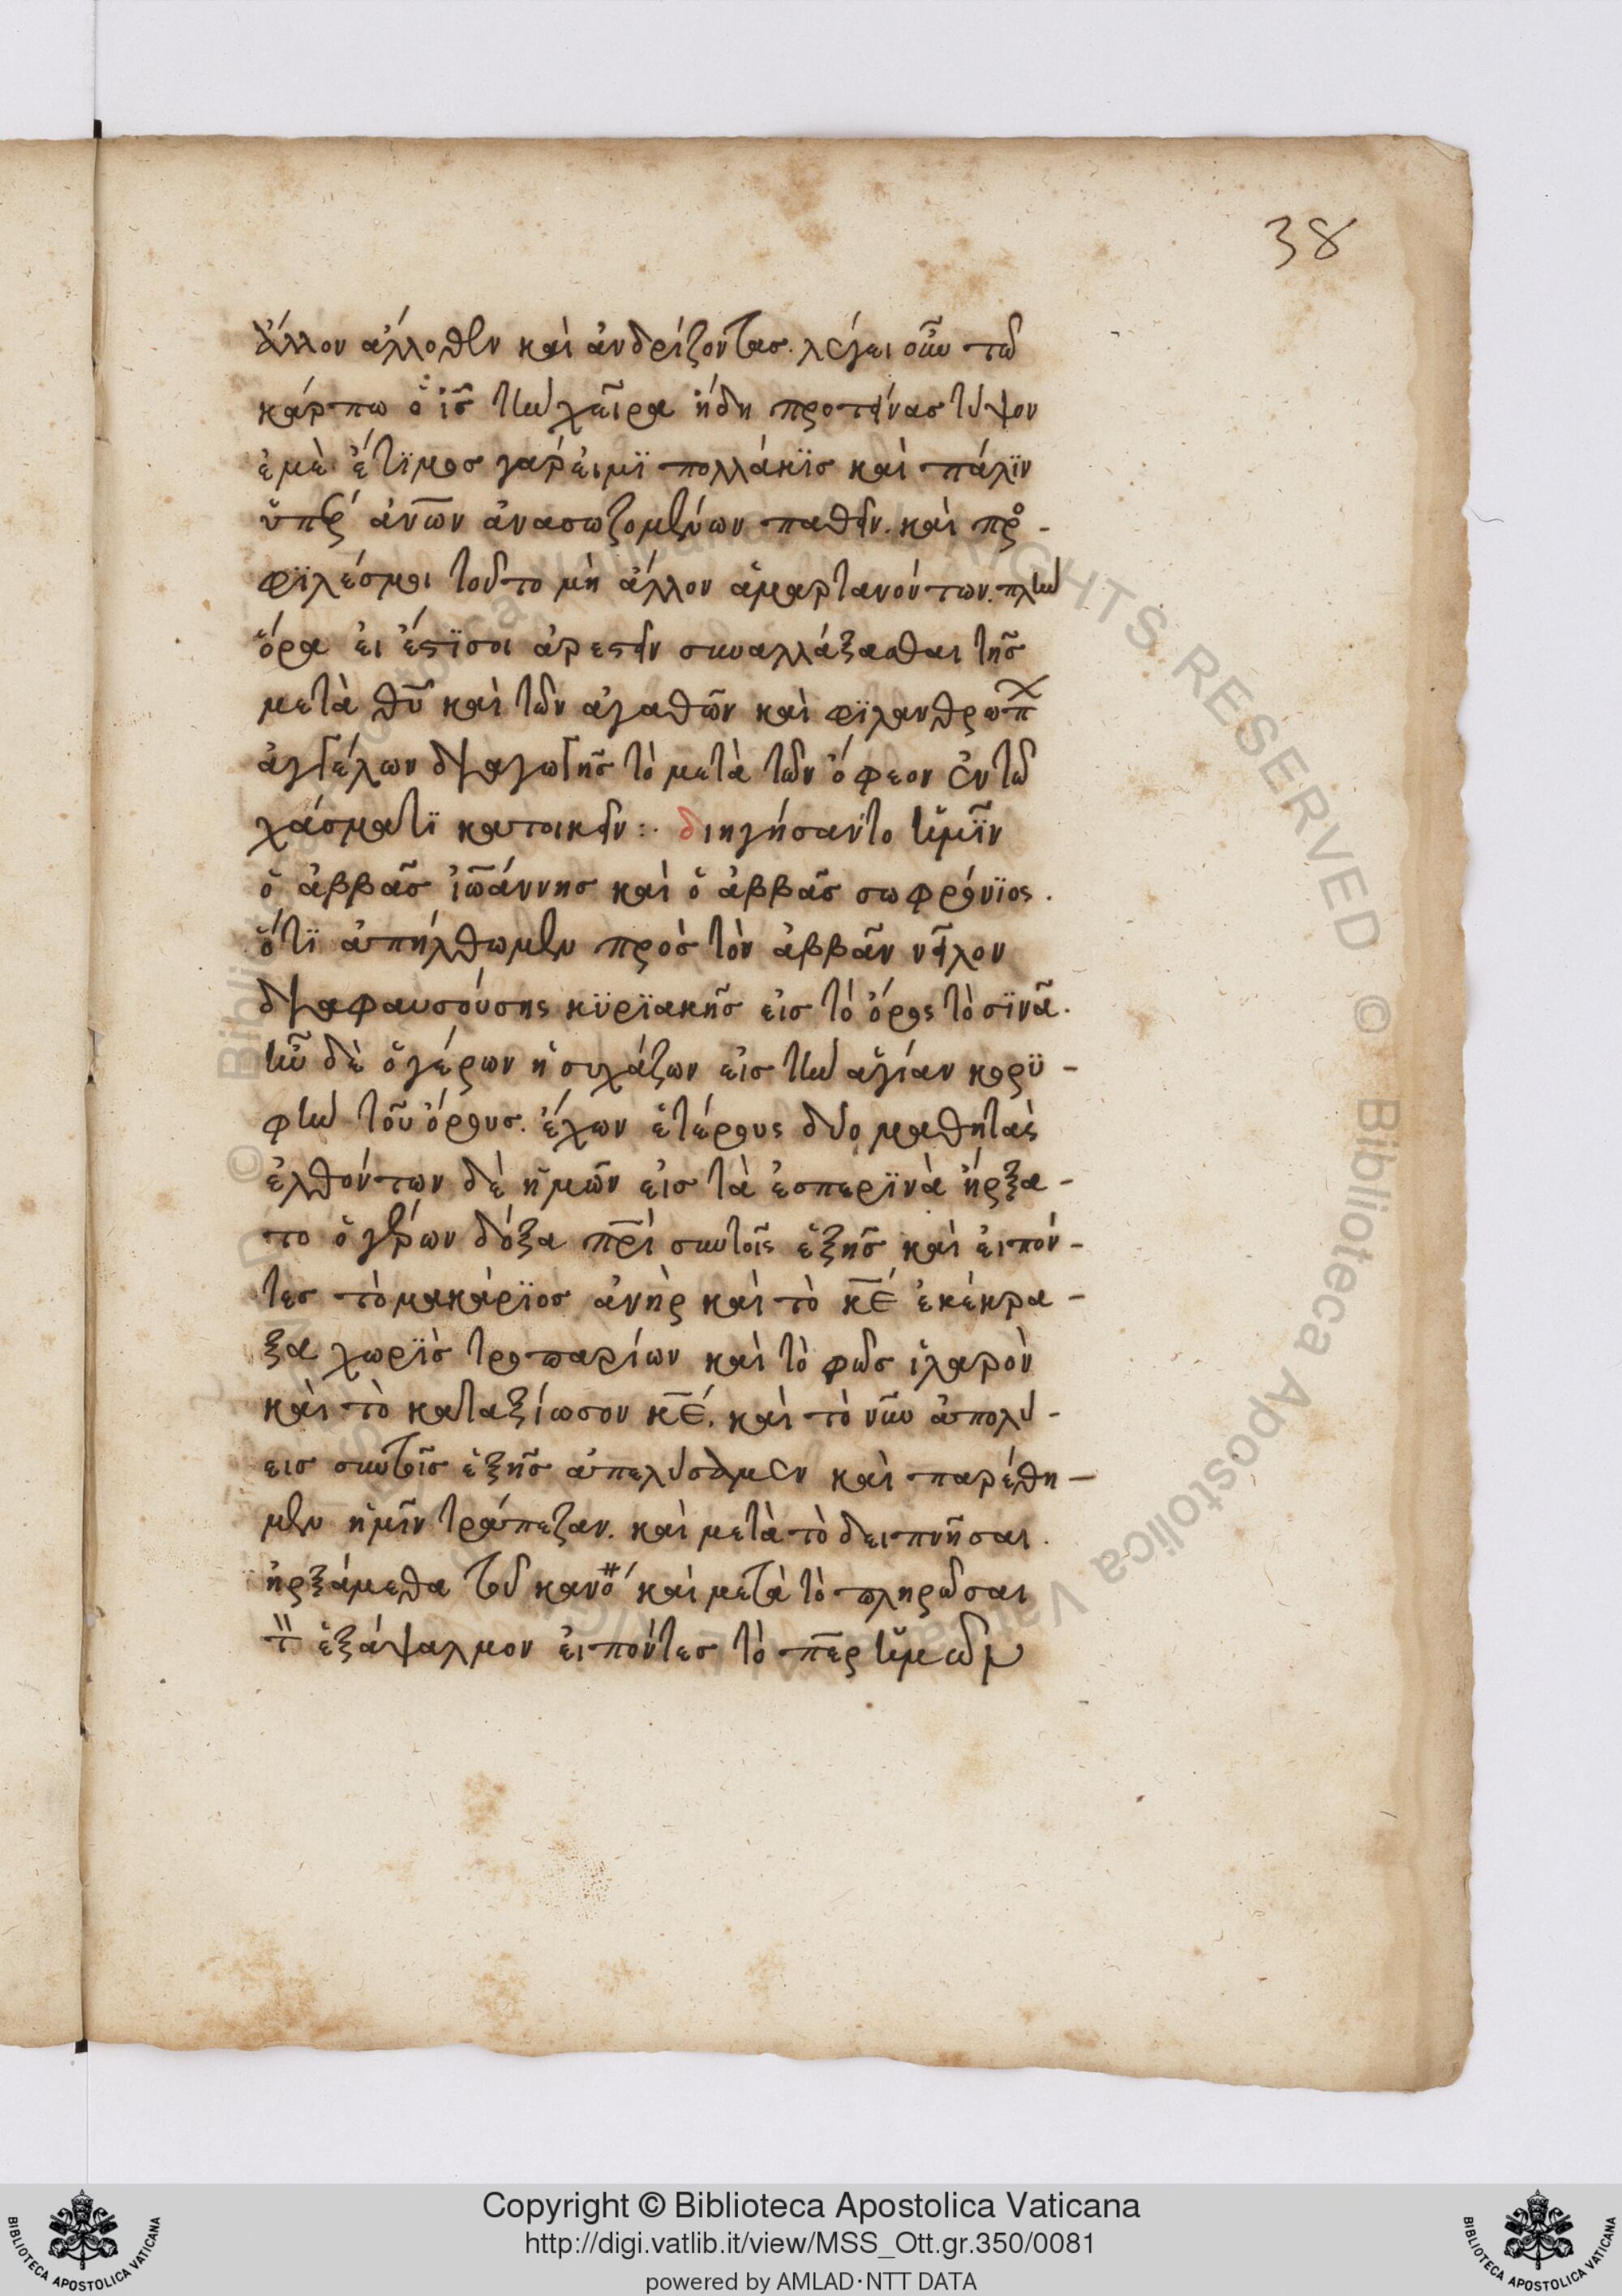 38
ἄλλον ἄλλοθεν καὶ ἀνδρίζοντας. λέγει οὖν τῶ
κάρπω ὁ ἰς τὴν χεῖρα ἤδη προτείνας τύψον
ἐμὲ ἕτϊμος γάρ εἰμϊ πολλάκϊς καὶ πάλϊν
ὑπὲρ ἀνων ἀνασωζομένων παθεῖν. καὶ προ-
φϊλέσμοι τοῦτο μὴ ἄλλον ἁμαρτανόντων. πλὴν
ὅρα εἰ ἔστϊσοι ἀρεστὸν συναλλάξασθαι τῆς
μετὰ θυ καὶ τῶν ἀγαθῶν καὶ φϊλανθρωπ
ἀγγέλων διαγωγῆς τὸ μετὰ τῶν ὄφεον ἐν τῶ
χάσματϊ κατοικεῖν :· διηγήσαντο ἡμῖν
ὁ ἀββᾶς ἰωάννης καὶ ὁ ἀββᾶς σωφρόνϊος.
ὅτϊ ἀπήλθωμεν πρὸς τὸν ἀββᾶν νεῖλον
διαφαυσούσης κϋρϊακῆς εἰς τὸ ὄρος τὸ σϊνᾶ.
ἦν δὲ ὁ γέρων ἡσυχάζων εἰς τὴν ἁγίαν κορϋ-
φὴν τοῦ ὄρους. ἔχων ἑτέρους δύο μαθητὰς
ἐλθόντων δὲ ἡμῶν εἰς τὰ ἑσπερϊνὰ ἤρξα-
το ὁ γέρων δόξα πρὶ σὺν τοῖς ἑξῆς καὶ εἰπόν-
τες τὸ μακάρϊος ἀνὴρ καὶ τὸ κε ἐκέκρα-
ξα χωρϊς τροπαρίων καὶ τὸ φῶς ἱλαρὸν
καὶ τὸ καταξίωσον κε. καὶ τὸ νῦν ἀπολύ-
εις σὺν τοῖς ἑξῆς ἀπελύσαμεν καὶ παρέθη-
μεν ἡμῖν τράπεζαν. καὶ μετὰ τὸ δειπνῆσαι.
ἠρξάμεθα τοῦ κανό καὶ μετὰ τὸ πληρῶσαι
τ ἑξάψαλμον εἰπόντες τὸ περ ἡμῶν
Copyright © Biblioteca Apostolica Vaticana
http://digi.vatlib.it/view/MSS_Ott.gr.350/0081
powered by AMLAD·NTT DATA
BIBLIOTECA APOSTOLICA VATICANA
BIBLIOTECA APOSTOLICA VATICANA